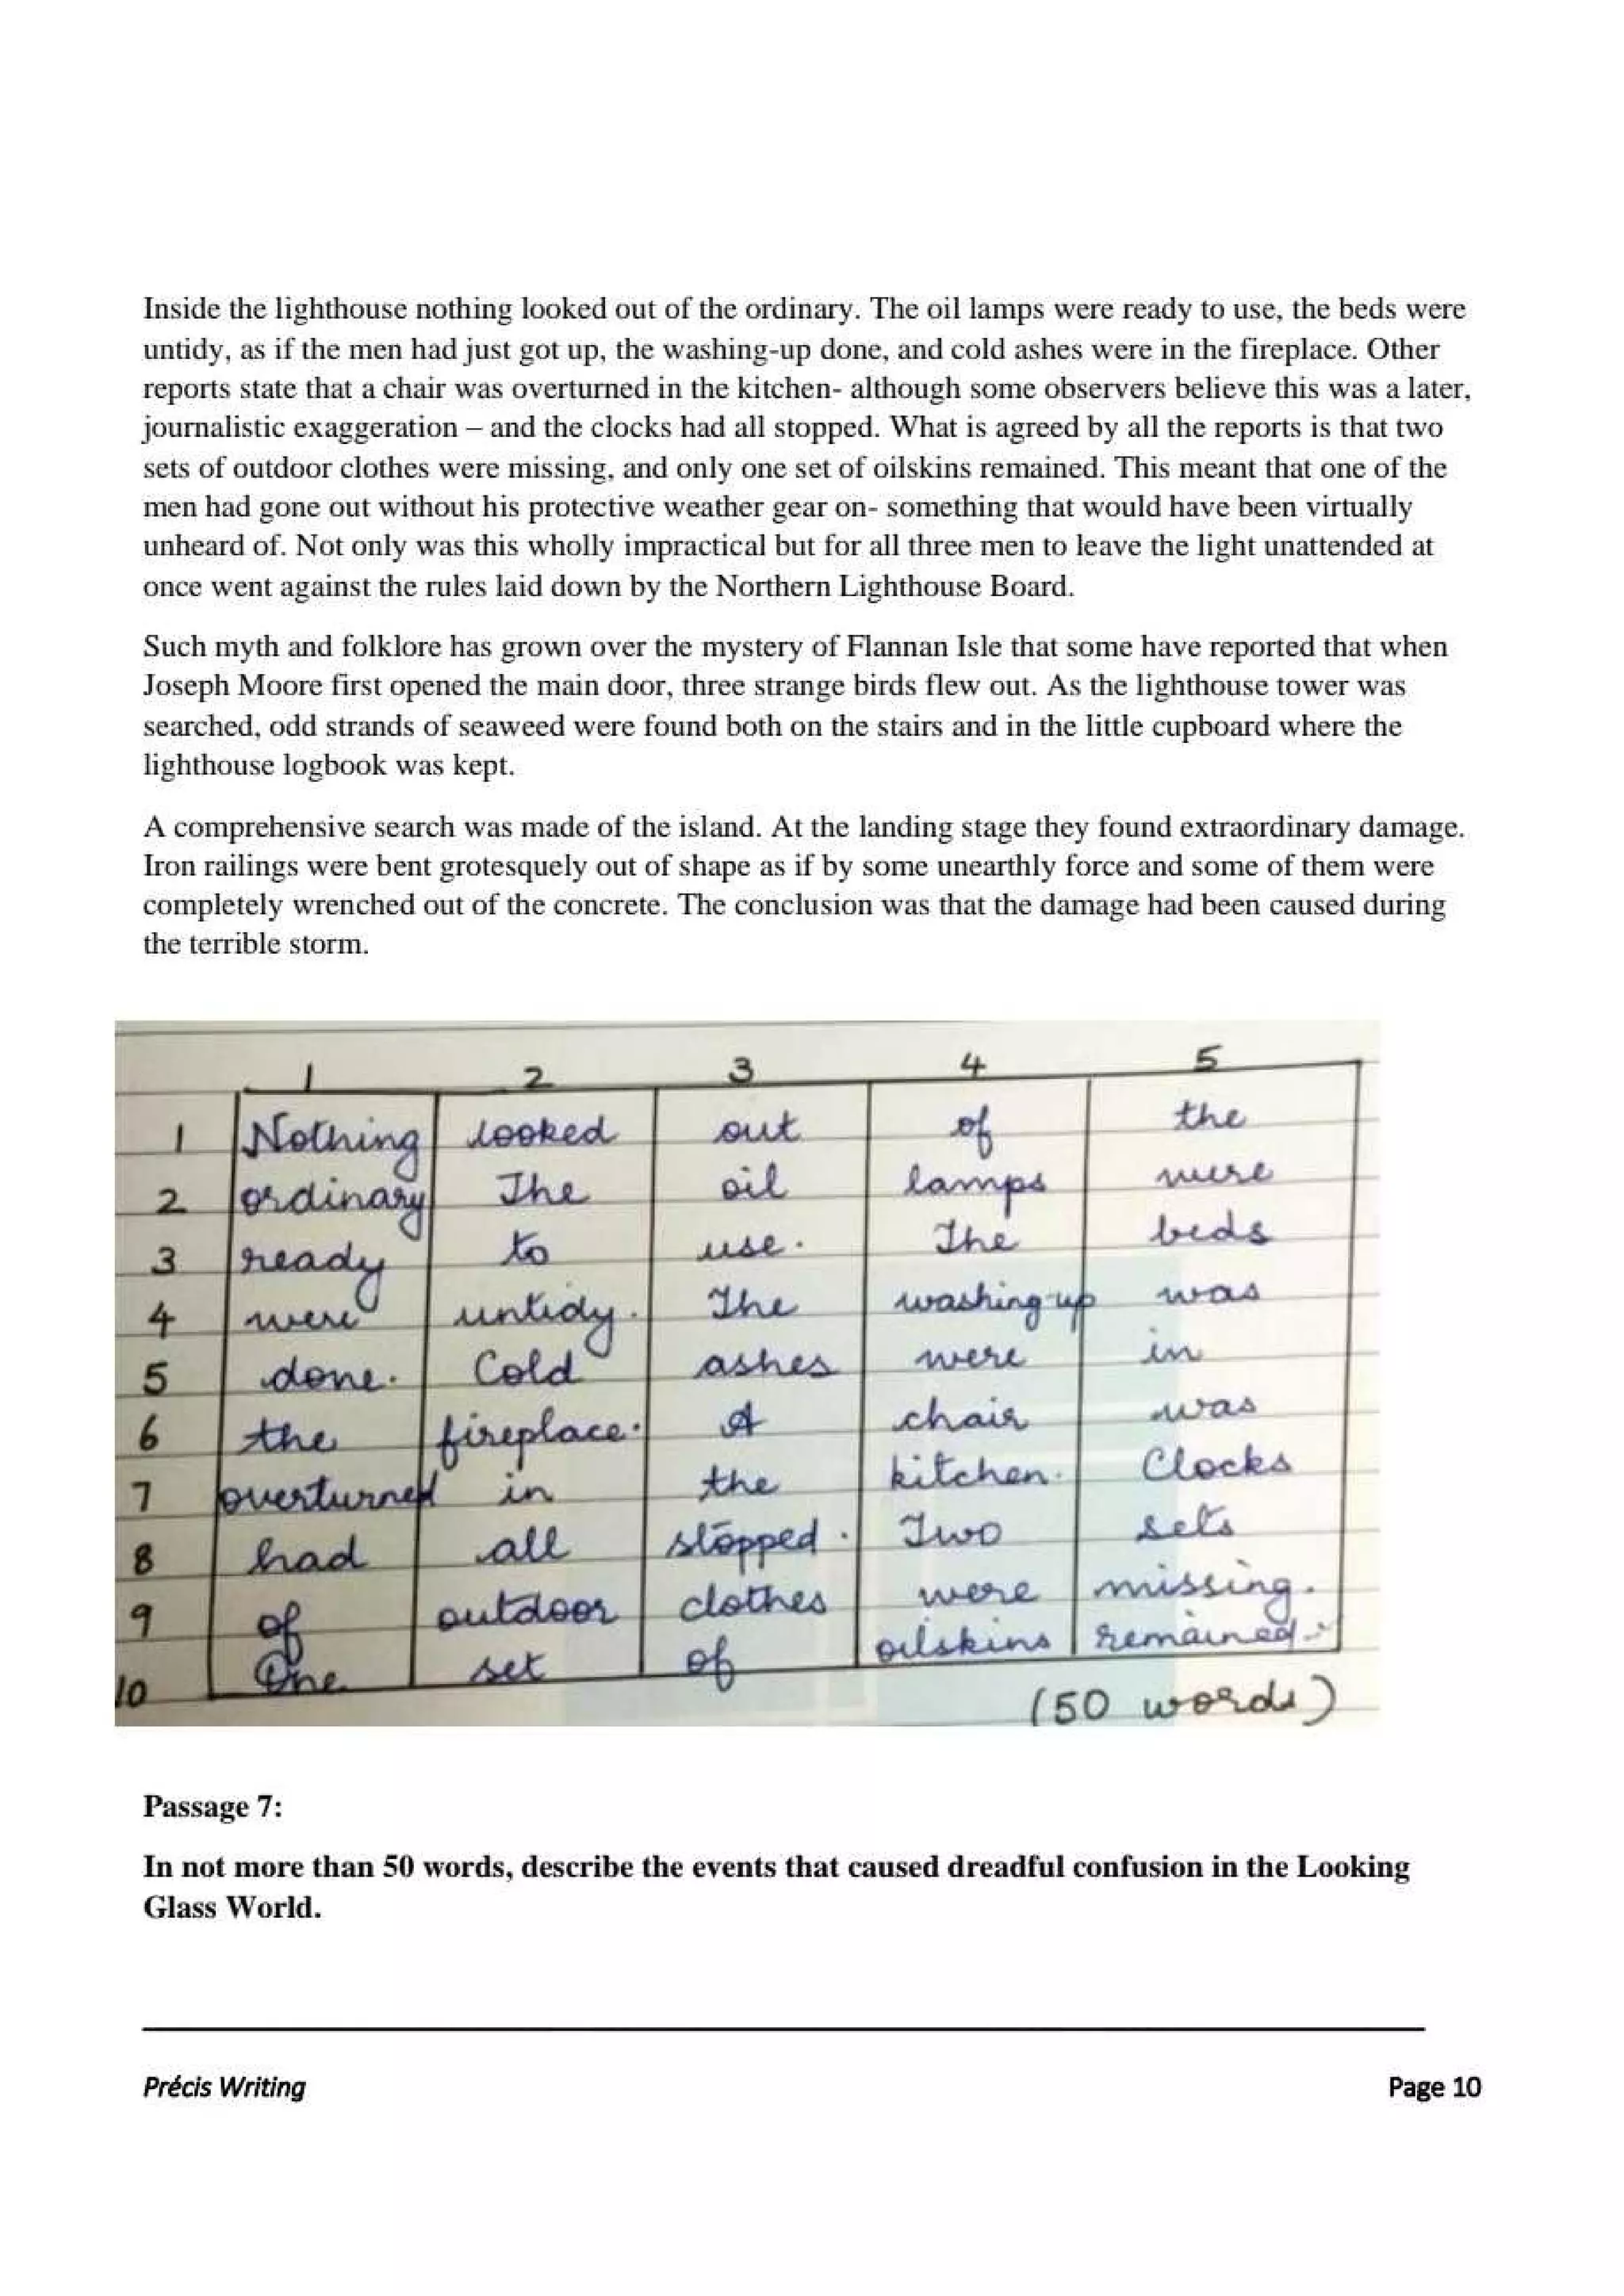 Inside the lighthouse nothing looked out of the ordinary. The oil lamps were ready to use, the beds were
untidy, as if the men had just got up, the washing-up done, and cold ashes were in the fireplace. Other
reports state that a chair was overturned in the kitchen- although some observers believe this was a later,
journalistic exaggeration – and the clocks had all stopped. What is agreed by all the reports is that two
sets of outdoor clothes were missing, and only one set of oilskins remained. This meant that one of the
men had gone out without his protective weather gear on- something that would have been virtually
unheard of. Not only was this wholly impractical but for all three men to leave the light unattended at
once went against the rules laid down by the Northern Lighthouse Board.
Such myth and folklore has grown over the mystery of Flannan Isle that some have reported that when
Joseph Moore first opened the main door, three strange birds flew out. As the lighthouse tower was
searched, odd strands of seaweed were found both on the stairs and in the little cupboard where the
lighthouse logbook was kept.
A comprehensive search was made of the island. At the landing stage they found extraordinary damage.
Iron railings were bent grotesquely out of shape as if by some unearthly force and some of them were
completely wrenched out of the concrete. The conclusion was that the damage had been caused during
the terrible storm.
1 2 3 4 5
1 Nothing looked out of the
2 ordinary The oil lamps were
3 ready to use. The beds
4 were untidy. The washing-up was
5 done. Cold ashes were in
6 the fireplace. A chair was
7 overturned in the kitchen. Clocks
8 had all stopped. Two sets
9 of outdoor clothes were missing.
10 One set of oilskins remained.
(50 words)
Passage 7:
In not more than 50 words, describe the events that caused dreadful confusion in the Looking
Glass World.
Précis Writing Page 10